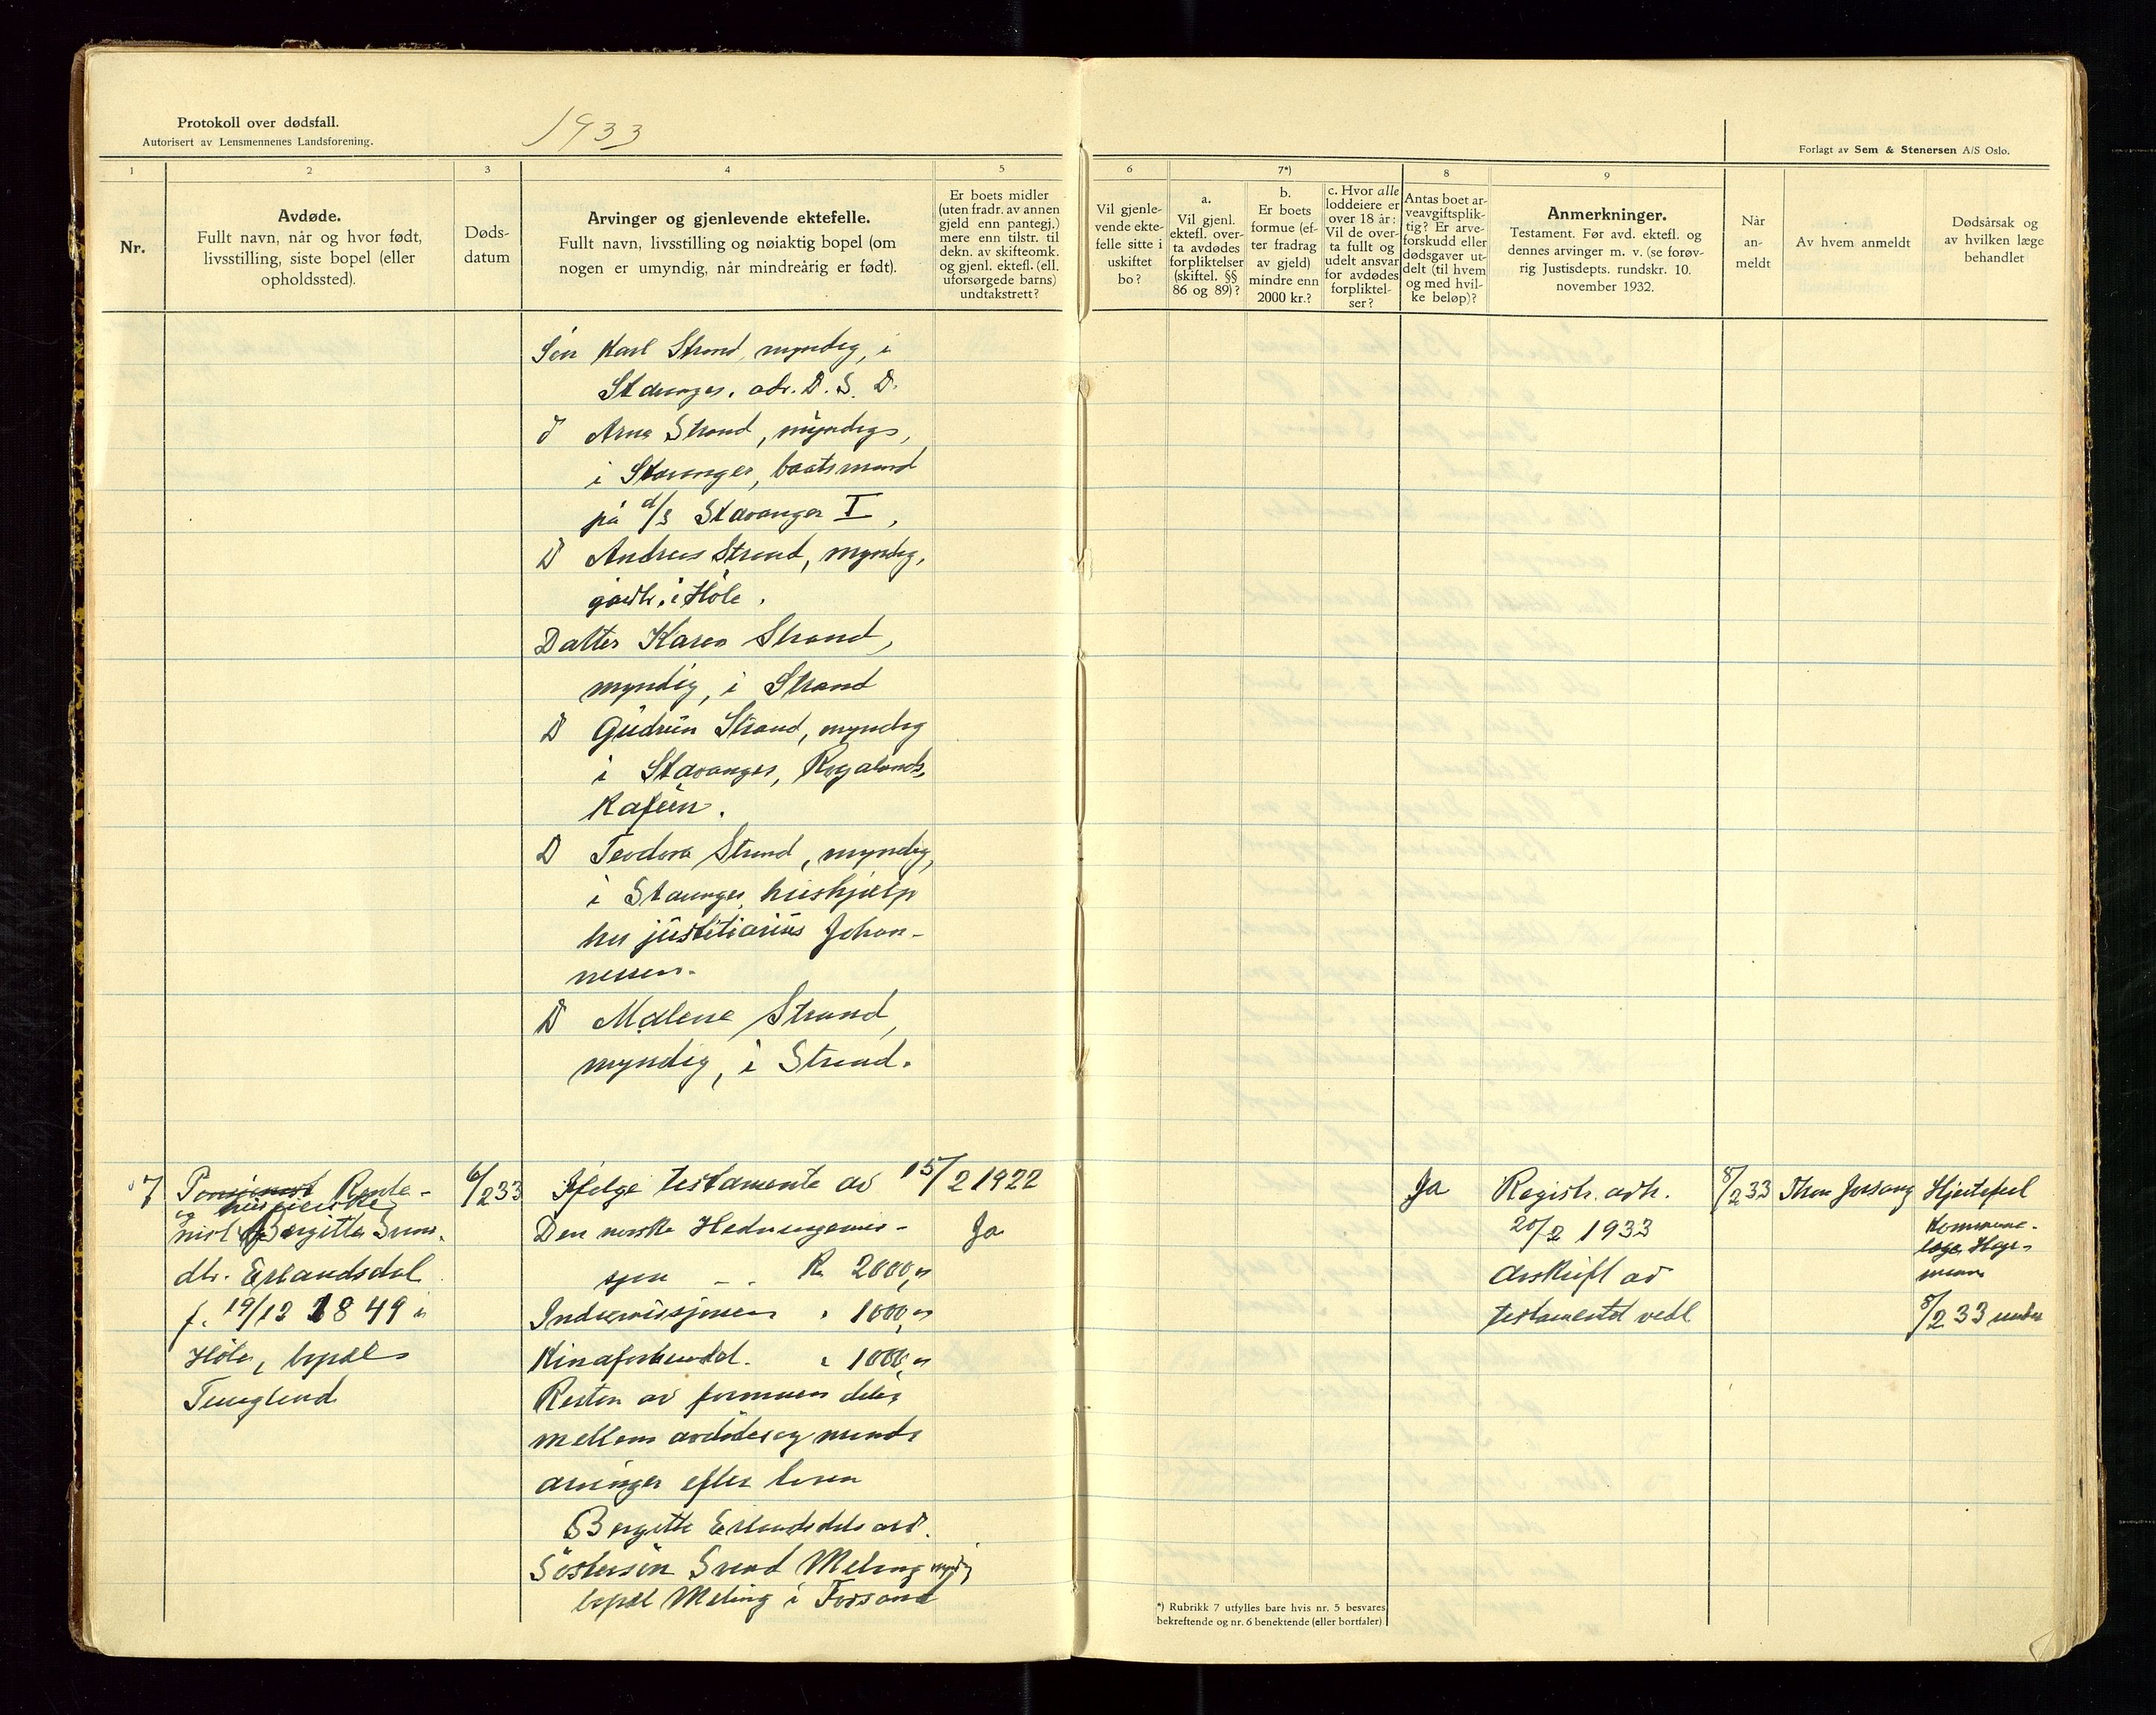 Protokoll over dødsfall.
Autorisert av Lensmennenes Landsforening.
1933
Forlagt av Sem & Stenersen A/S Oslo.
1
2
3
4
5
6
7*)
8
9
Nr.
Avdøde.
Fullt navn, når og hvor født,
livsstilling, siste bopel (eller
opholdssted).
Døds-
datum
Arvinger og gjenlevende ektefelle.
Fullt navn, livsstilling og nøiaktig bopel (om
nogen er umyndig, når mindreårig er født).
Er boets midler
(uten fradr. av annen
gjeld enn pantegj.)
mere enn tilstr. til
dekn. av skifteomk.
og gjenl. ektef. (ell.
uforsørgede barns)
undtakstrett?
Vil gjenle-
vende ekte-
felle sitte i
uskiftet
bo?
a.
Vil gjenl.
ektefl. over-
ta avdødes
forpliktelser
(skiftel. §§
86 og 89)?
b.
Er boets
formue (ef-
ter fradrag
av gjeld)
mindre enn
2000 kr.?
c. Hvor alle
loddeiere er
over 18 år:
Vil de over-
ta fullt og
udelt ansvar
for avdødes
forpliktel-
ser?
Antas boet ar-
veavgiftsplik-
tig? Er arve-
forskudd eller
dødsgaver ut-
delt (til hvem
og med hvil-
ke beløp)?
Anmerkninger.
Testament. Før avd. ektefl. og
dennes arvinger m. v. (se forøv-
rig Justisdepts. rundskr. 10.
november 1932.
Når
an-
meldt
Av hvem anmeldt
Dødsårsak og
av hvilken læge
behandlet
Søn Karl Strand, myndig, i
Stavanger. adr. D. S. D.
D Arne Strand, myndig,
i Stavanger, baatsmand
på d/s Stavanger I,
D Andreas Strand, myndig,
gårdbr. i Høle.
Datter Karen Strand,
myndig, i Strand
D Gudrun Strand, myndig
i Stavanger, Rogalands
Kafeen.
D Teodora Strand, myndig,
i Stavanger, hushjælp
hos justitiarius Johan-
nessen.
D Malene Strand,
myndig, i Strand.
7
Pensionist Rente-
og huseierske
nist Bergitte Svens.
dtr. Erlandsdal
f. 19/12 1849 i
Høle, bopæl
Tungland
6/2 33
Ifølge testamente av 15/2 1922
Den norske Hedningemis-
sjon - - Kr. 2000,00
Indremissjonen " 1000,00
Kinaforbundet. " 1000,00
Resten av formuen deles
mellem avdødes og mands
arvinger efter loven
Bergitte Erlandsdals arv.
Søstersøn Svend Meling myndig
bopæl Meling i Forsand
Ja
Ja
Registr. adr.
20/2 1933
Avskrift av
testamentet vedl
8/2 33
Thore Jøssang
Hjertefeil
Kommune-
læge Hage-
mann
8/2 33
*) Rubrikk 7 utfylles bare hvis nr. 5 besvares
bekreftende og nr. 6 benektende (eller bortfaler).